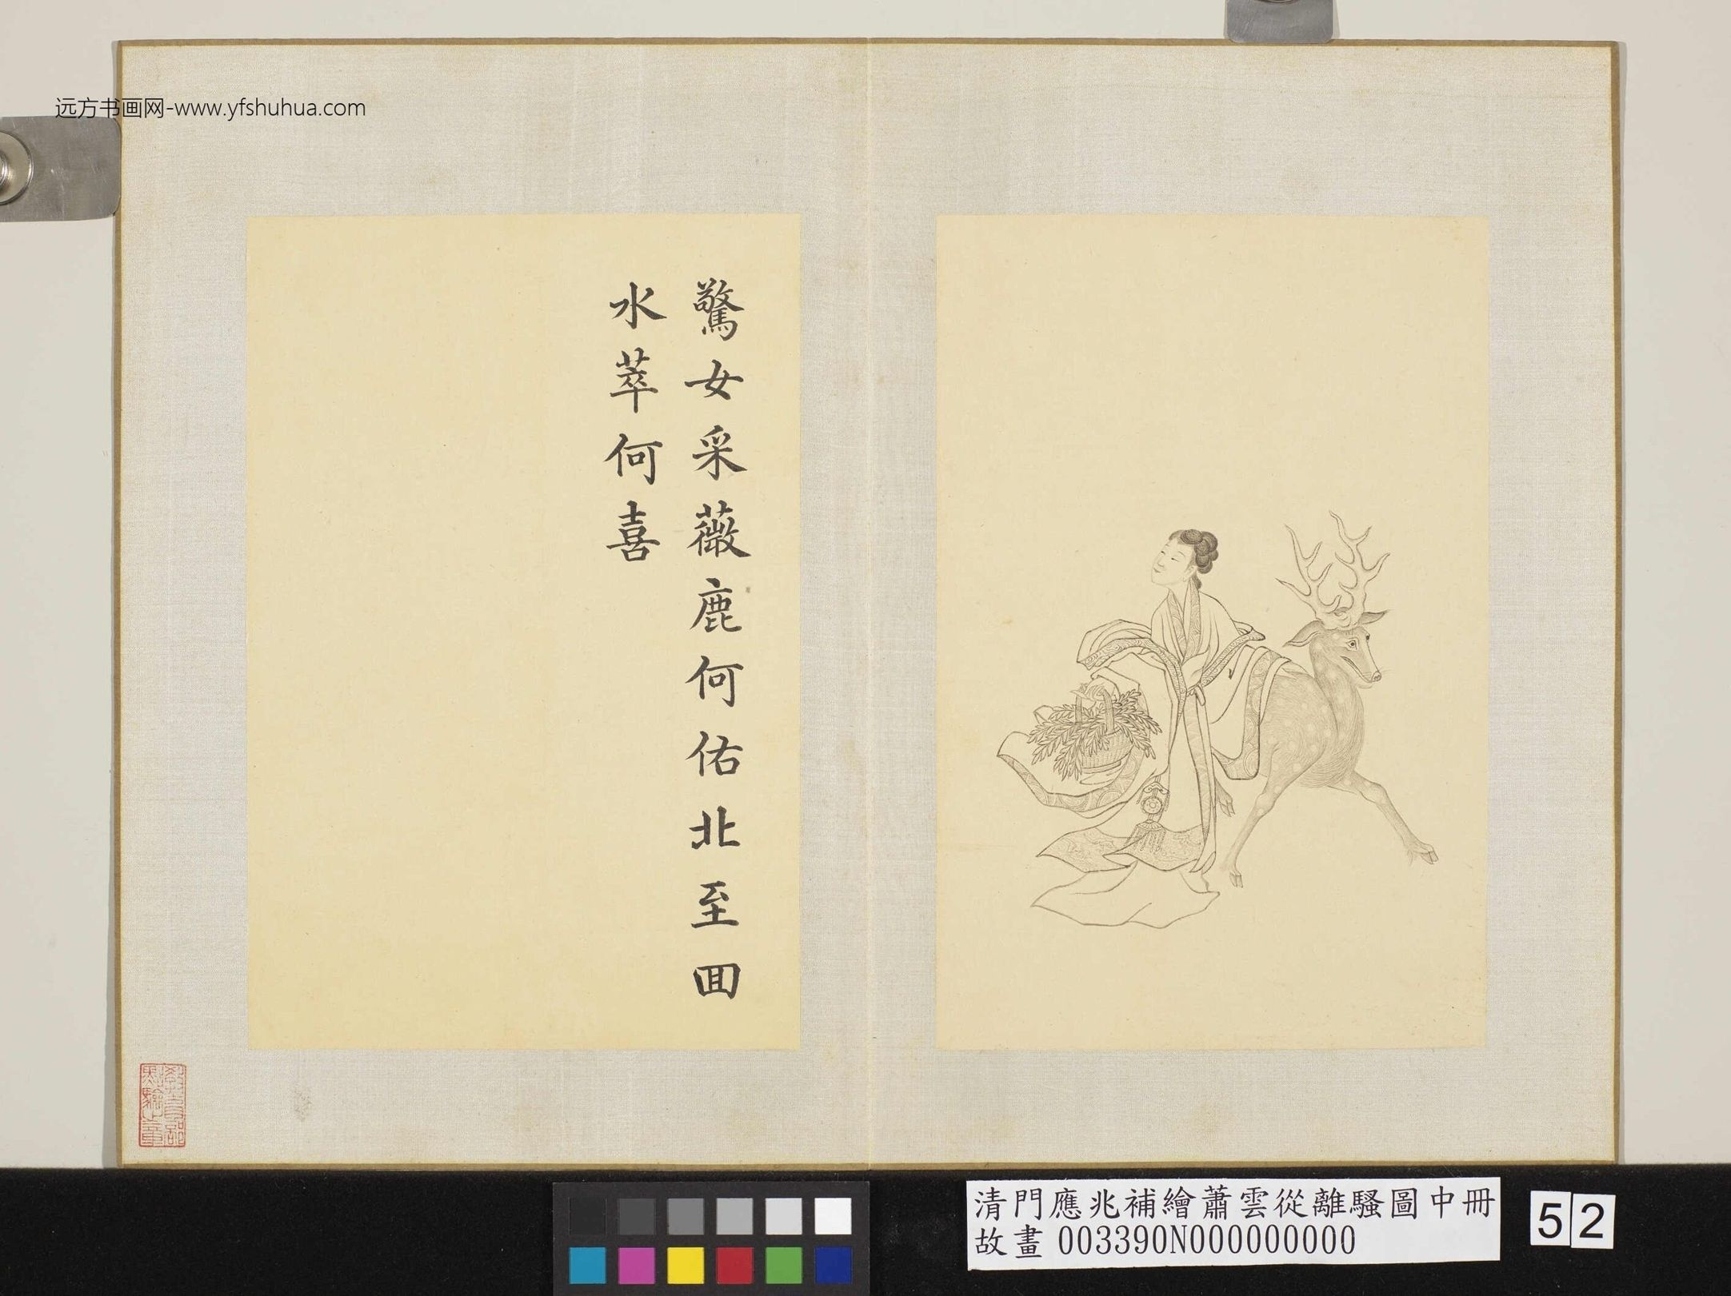 远方书画网-www.yfshuhua.com
驚女采薇鹿何佑北至回
水萃何喜
清門應兆補繪蕭雲從離騷圖中冊
故畫 003390N000000000
52